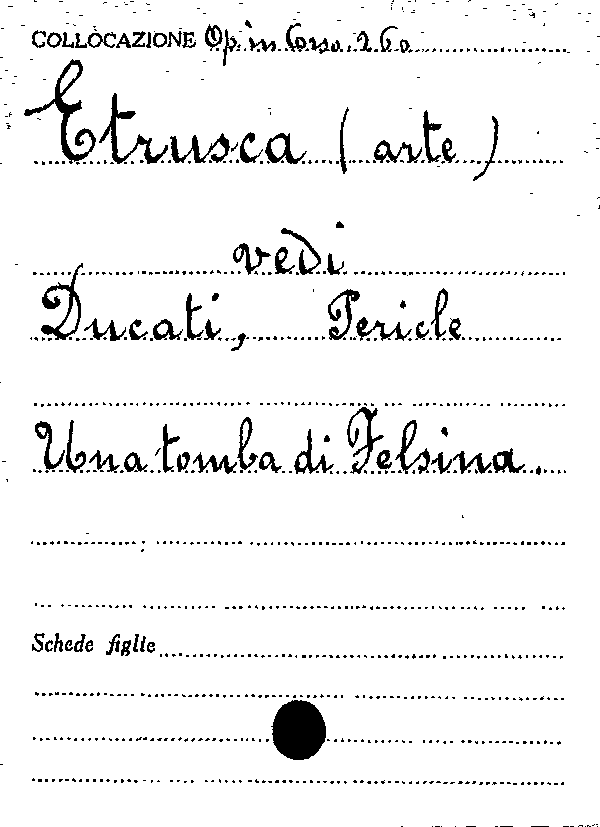 COLLOCAZIONE Op. in Corso. 260
Etrusca (arte)
vedi
Ducati, Pericle
Una tomba di Felsina.
Schede figlie